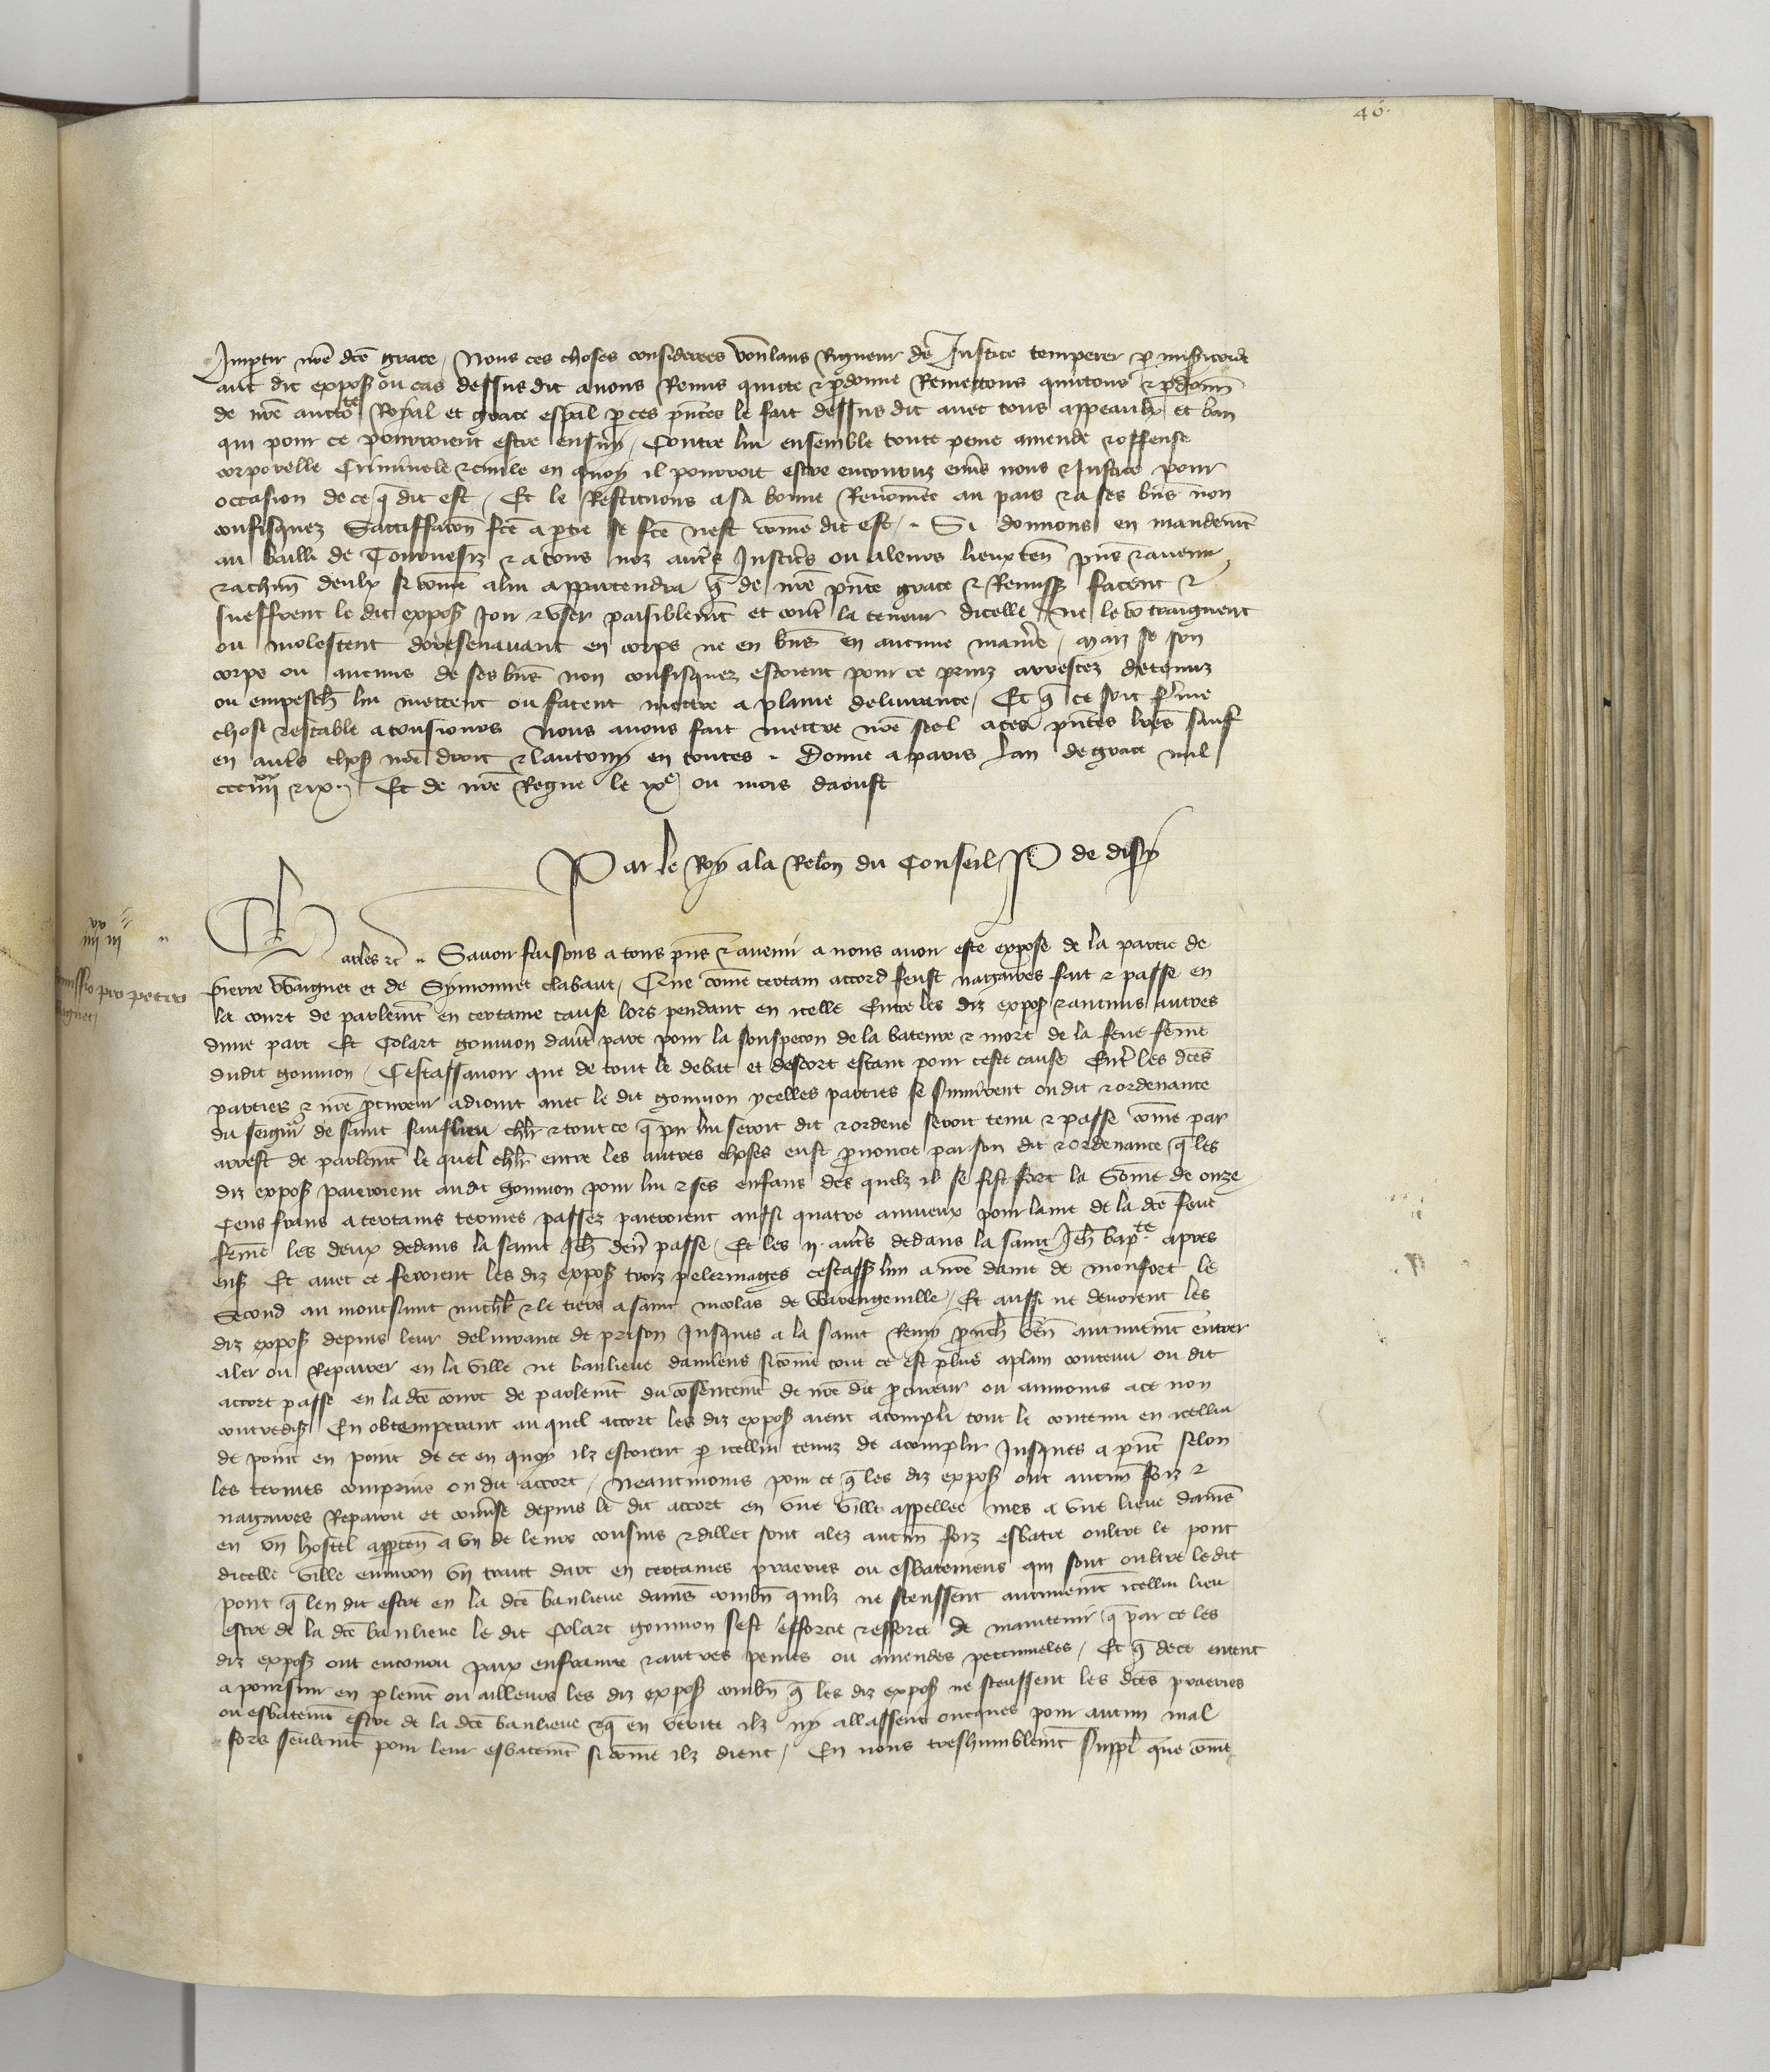 46.
Imptir nre dce grace / Nous ces choses considerees voulans Rigueur de Justice temperer p misicorde
aut dit expos ou cas dessusdit avons Remis quicte & pdonne Remettons quittons & pdonns
de nre auctote Royal et grace espal p ces pntes le fait dessusdit avec tous appeaulx et ban
qui pour ce pourroient estre ensuy / Contre lui ensemble toute peine amende & offense
corporelle Criminele & civile en quoy il pourroit estre encouruz envs nous & Justice pour
occasion de ce q dit est / Et le Restituons a sa bonne Renomee au pais & a ses bns non
confisquez Sattiffacon fcte a ptie se fcte nest come dit est / Si donnons en mandemt
au bailli de Tournesiz & a tous noz autrs Justicrs ou a leurs lieuxten pns & avenir
& a chun deulx si come a lui appartendra q de nre pnte grace & Remiss facent &
sueffrent le dit expos Joir & user paisiblemt et cont la teneur dicelle / ne le contraignent
ou molestent doresenavant en corps ne en bns en aucune maniere / Maiz se son
corps ou aucuns de ses bns non confisquez estoient pour ce prinz arrestez detenuz
ou empesch lui mettent ou facent mettre a plaine delivrance / Et q ce soit ferme
chose & estable a tousiours Nous avons fait mettre nre scel a ces pntes lres sauf
en auls chos nre droit & lautruy en toutes / Donne a paris Lan de grace mil
ccc iiiixx & ix / Et de nre Regne le ixe ou mois daoust
Par le Roy a la Relon du Conseil / P de disy
Charles &c / Savoir faisons a tous pns & avenir a nous avoir este expose de la partie de
pierre Waignet et de Symonnet clabaut / Que come certain accord feust nagaires fait & passe en
la court de parlemt en certaine cause lors pendant en icelle Entre les diz expos & aucuns autres
dune part Et Colart gonnion dautre part pour la souspecon de la bateure & mort de la feue feme
dudit gonnion / Cestassavoir que de tout le debat et descort estant pour ceste cause Entr les dces
parties & nre pcureur adioint avec le dit gonnion ycelles parties se sumirent ou dit & ordenance
du seigneur de saint sauflieu chlr & tout ce q par lui seroit dit & ordene seroit tenu & passe come par
arrest de parlemt le quel chlr entre les autres choses eust pnoncie par son dit & ordenance q les
diz expos paieroient audit gonnion pour lui & ses enfans des quelz il se fist fort la Some de onze
Cens frans a certains termes passez paieroient aussi quatre annuex pour lame de la dce feue
feme les deux dedans la saint Jeh derr passe / Et les ii autrs dedans la saint Jeh bapte apres
ens Et avec ce feroient les diz expos troiz pelermages cestass lun a nre dame de monfort le
Second au mont saint michiel & le tiers a saint nicolas de Warengeville / Et aussi ne devoient les
diz expos depuis leur delivrance de prison Jusques a la saint Remy prouch ven aucunemt entrer
aler ou Reparer en la ville ne banlieue damiens sicome tout ce est plus aplain contenu ou dit
accort passe en la dce court de parlemt du consentemt de nre dit pcureur ou aumoins a ce non
contredis En obtemperant au quel accort les diz expos aient acompli tout le contenu en icellui
de point en point de ce en quoy ilz estoient p icellui tenuz de acomplir Jusques a pnt selon
les termes comprins ou dit accort / Neantmoins pour ce q les diz expos ont aucun foiz &
nagaires Repaire et converse depuis le dit accort en une ville appellee mes a une lieue damiens
en un hostel apparten a un de leurs cousins & dillec sont alez aucun foiz esbatre oultre le pont
dicelle ville environ un trait darc en certaines praeries ou esbatemens qui sont oultre ledit
pont q len dit estre en la dce banlieue damiens combn quilz ne sceussent aucunemt icellui lieu
estre de la dce banlieue le dit Colart gonnion sest efforcie & efforce de maintenir q par ce les
diz expos ont encouru paix enfrainte & autres peines ou amendes pecunieles / Et q de ce entent
a poursuir en plemt ou ailleurs les diz expos combn q les diz expos ne sceussent les dces praeries
ou esbatemt estre de la dce banlieue & q en verite ilz ny allassent oncques pour aucun mal
fors seulemt pour leur esbatemt si come ilz dient / En nous treshumblemt suppl que come